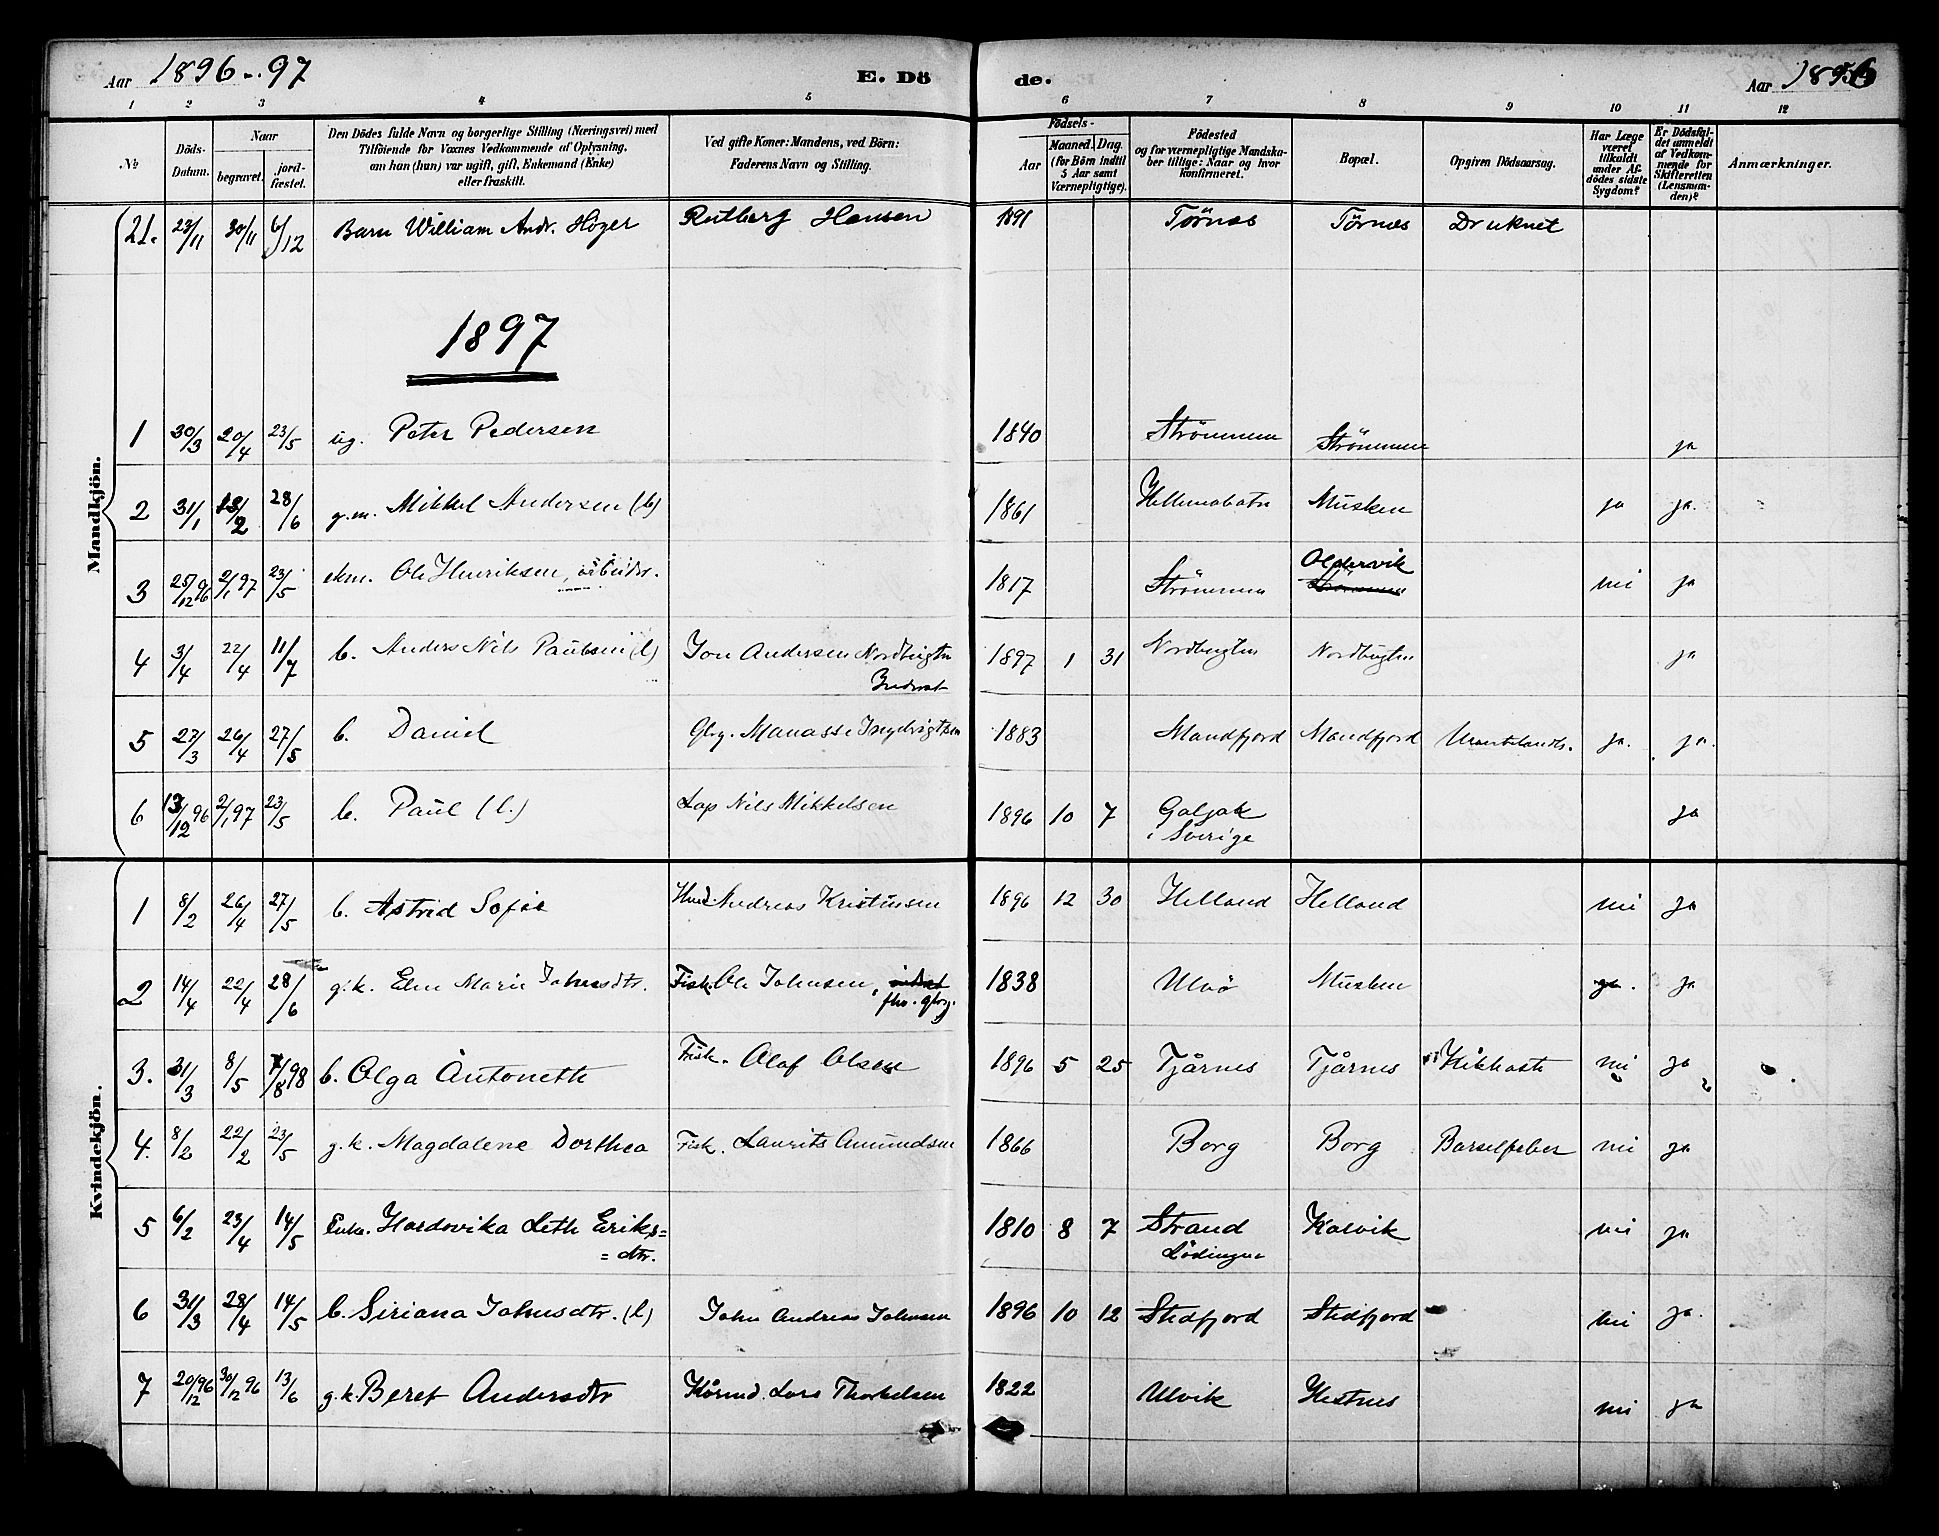 Aar 1896-97
E. Dö
de.
Aar 1896
1 2 3 4 5 6 7 8 9 10 11 12
№
Döds-Datum.
Naar
begravet.
jord-fæstet.
Den Dödes fulde Navn og borgerlige Stilling (Næringsvei) med
Tilföiende for Voxnes Vedkommende af Oplysning,
om han (hun) var ugift, gift, Enkemand (Enke)
eller fraskilt.
Ved gifte Koner: Mandens, ved Börn:
Faderens Navn og Stilling.
Födsels-
Aar
Maaned. Dag.
(for Börn indtil
5 Aar samt
Værnepligtige).
Födested
og for værnepligtige Mandska-
ber tillige: Naar og hvor
konfirmeret.
Bopæl.
Opgiven Dödsaarsag.
Har Læge
været
tilkaldt
under Af-
dödes sidste
Sygdom?
Er Dödsfal-
det anmeldt
af Vedkom-
mende for
Skifteretten
(Lensman-
den)?
Anmærkninger.
Mandkjön.
21. 23/11 30/11 6/12 Barn William Andr. Höger Rutberg Hansen 1891 Törnes Törnes Druknet
1897
1 30/3 20/4 23/5 ug. Peter Pedersen 1840 Strömmen Strömmen ja
2 31/1 13/2 28/6 g.m. Mikkel Andersen (l) 1861 Musken ja ja.
Oldervik
3 25/12 96 2/1 97 23/5 ekm. Ole Henriksen, arbeider. 1817 Strömmen Strömmen nei ja
4 3/4 22/4 11/7 b. Anders Nils Paulsen (l) Jon Andersen Nordbugten 1897 1 31 Nordbugten Nordbugten ja
Inderst
5 27/3 26/4 27/5 b. Daniel Gbg. Manasse Ingebrigtsen 1883 Mandfjord Mandfjord ja. ja.
6 13/12 96 2/1 97 23/5 b. Paul (l.) Lap Nils Mikkelsen 1896 10 7 Galjok ja
i Sverige
Kvindekjön.
1 8/2 26/4 27/5 b. Astrid Sofie Hmd. Andreas Kristensen 1896 12 30 Helland Helland nei ja
2 14/4 22/4 28/6 g.k. Elen Marie Johnsdtr. Fisk. Ole Johnsen, 1838 Ulvö Musken ja. ja
fhv. gbrg.
3. 31/3 8/5 7/8 98 b. Olga Antonette Fisk. Olaf Olsen 1896 5 25 Tjårnes Tjårnes Kikhoste nei ja
4. 8/2 22/2 23/5 g.k. Magdalene Dorthea Fisk. Laurits Amundsen 1866 Borg Borg Barselfeber nei ja
5 6/2 23/4 14/5 Enke. Hardovika Leth Eriks= 1810 8 7 Strand Kalvik nei ja
=dtr.
Lödingen
6 31/3 28/4 14/5 b. Siriana Johnsdtr. (l) John Andreas Johnsen 1896 10 12 Stedfjord Stedfjord nei ja.
7 20/12 96 30/12 96 13/6 g.k. Beret Andersdtr Kårmd. Lars Thorkelsen 1822 Ulvik Hestnes nei ja